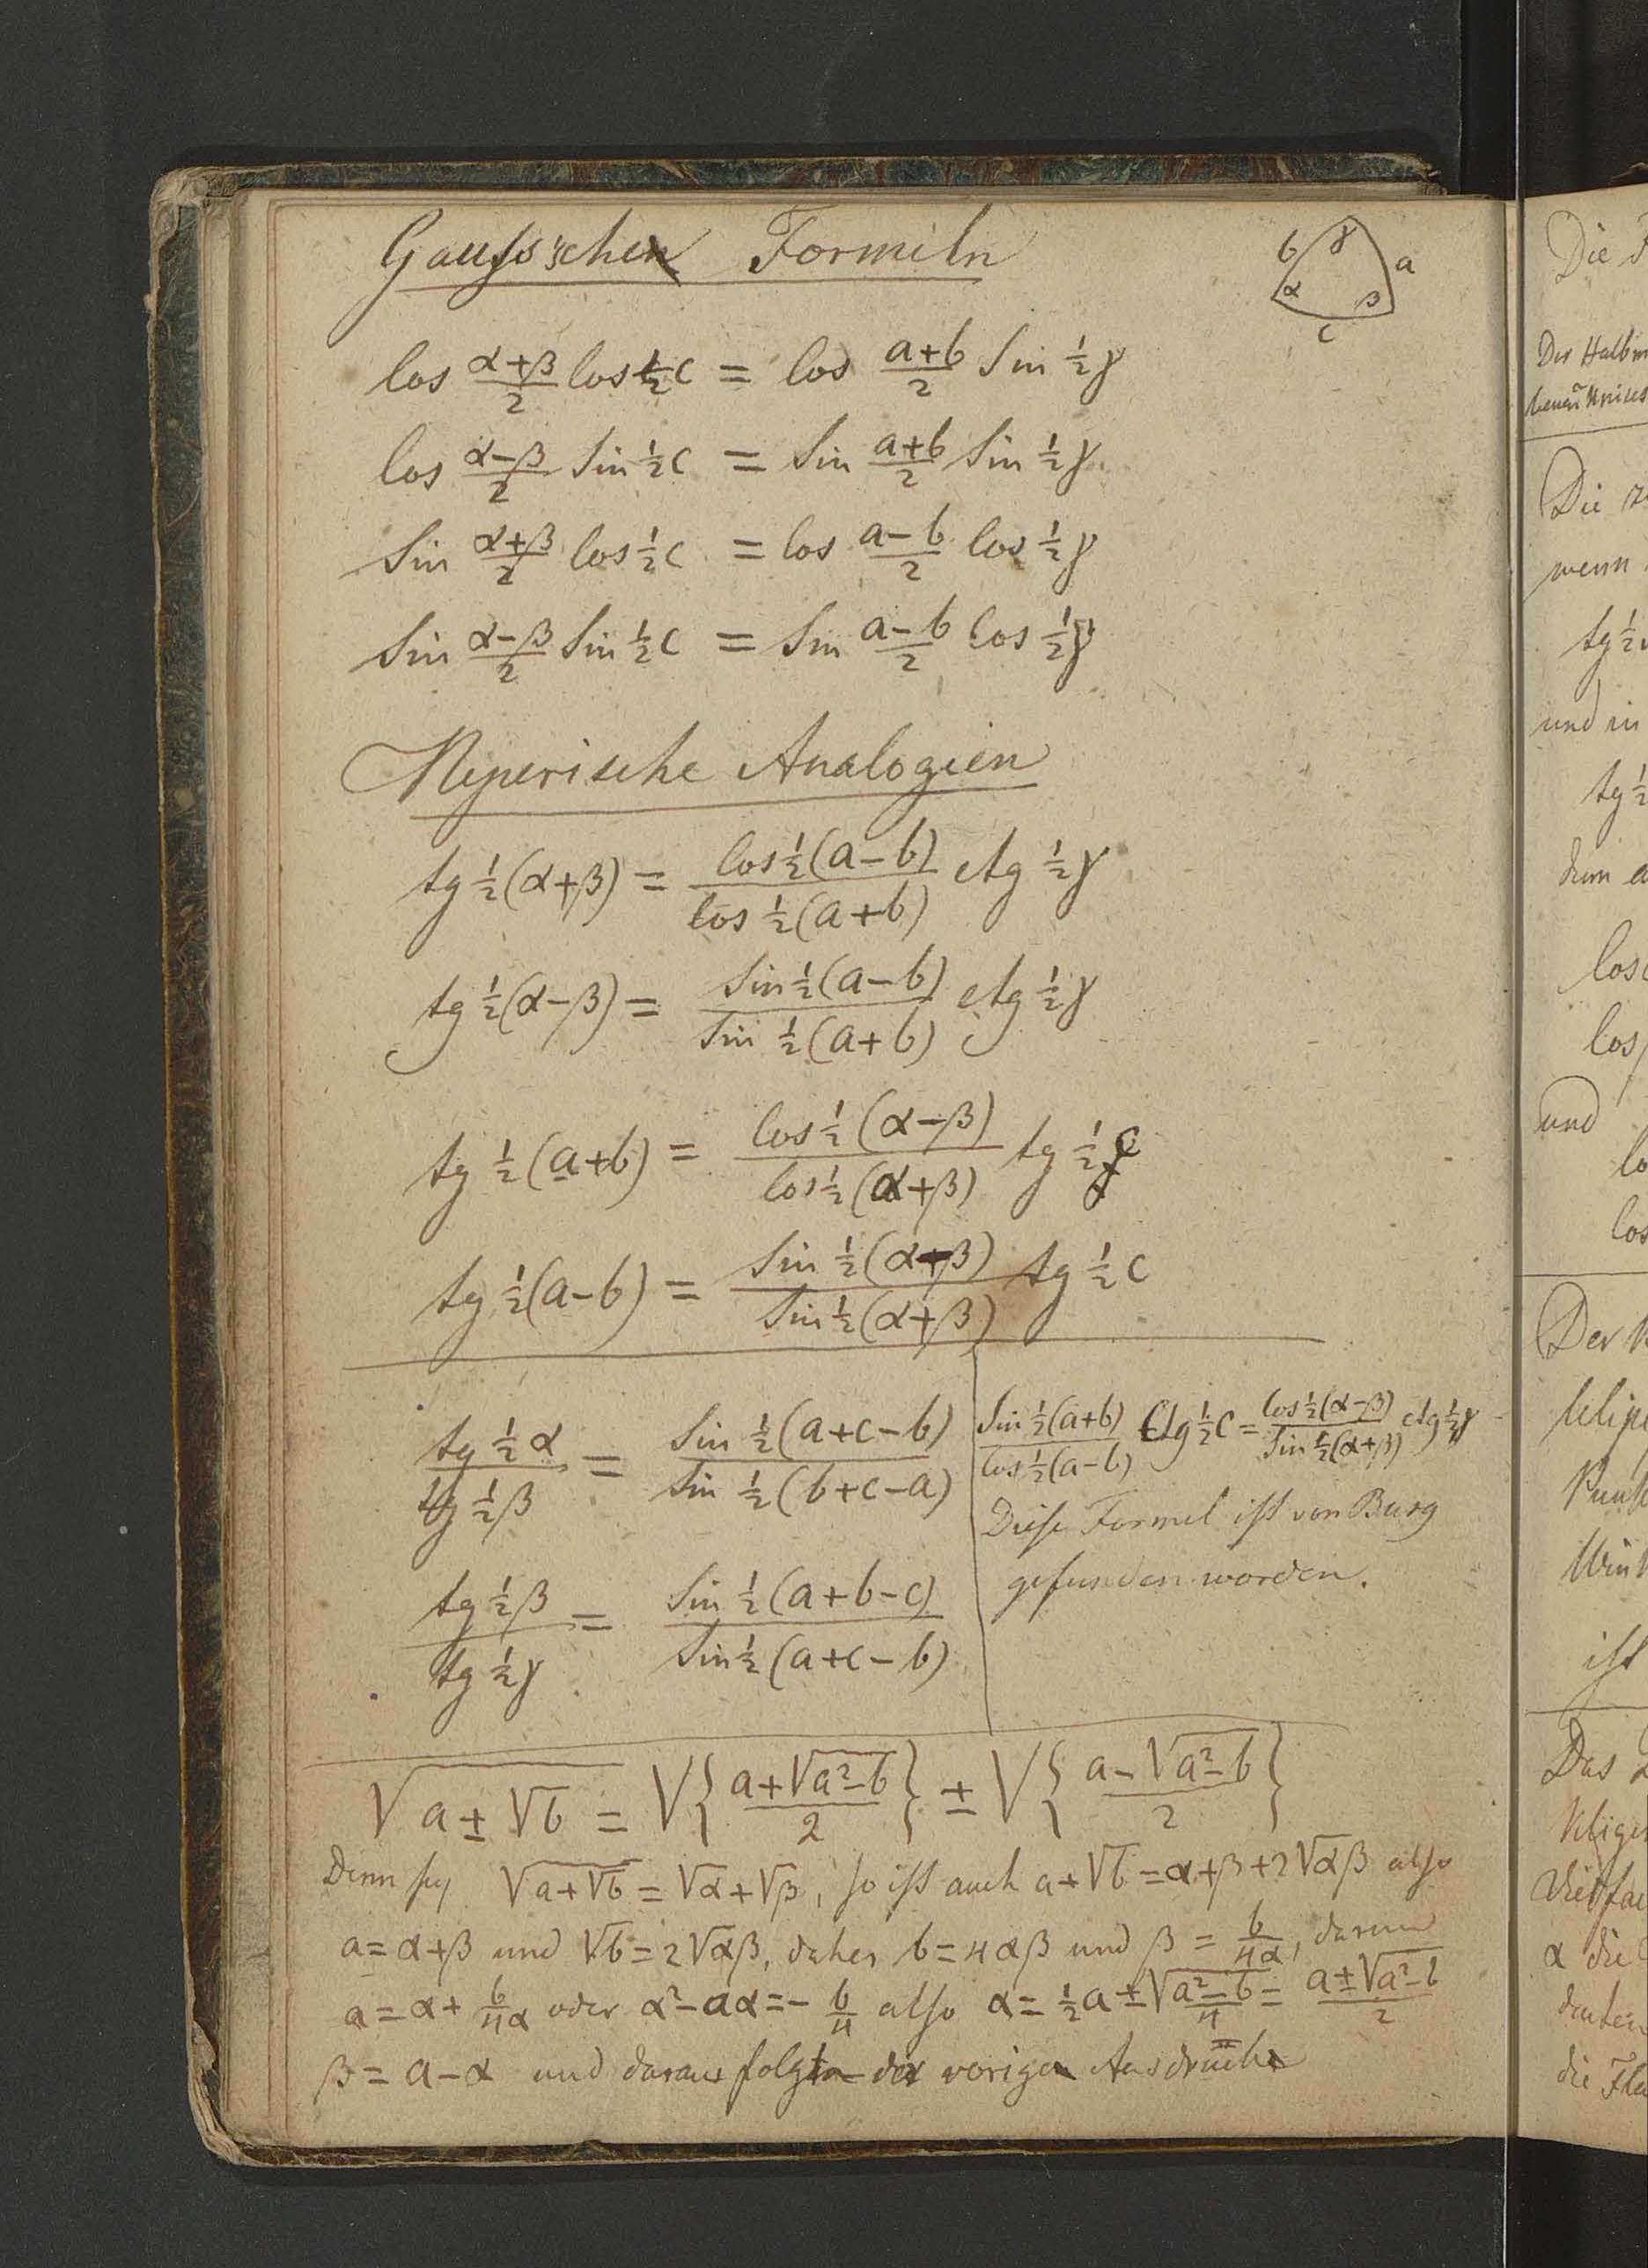 Gauss'sche Formeln
b γ a
α β
c
cos (α+β)/2 cos ½c = cos (a+b)/2 sin ½γ
cos (α-β)/2 sin ½c = sin (a+b)/2 sin ½γ
sin (α+β)/2 cos ½c = cos (a-b)/2 cos ½γ
sin (α-β)/2 sin ½c = sin (a-b)/2 cos ½γ
Neperische Analogien
tg ½(α+β) = cos ½(a-b) / cos ½(a+b) ctg ½γ
tg ½(α-β) = sin ½(a-b) / sin ½(a+b) ctg ½γ
tg ½(a+b) = cos ½(α-β) / cos ½(α+β) tg ½c
tg ½(a-b) = sin ½(α-β) / sin ½(α+β) tg ½c
tg ½α / tg ½β = sin ½(a+c-b) / sin ½(b+c-a)
tg ½β / tg ½γ = sin ½(a+b-c) / sin ½(a+c-b)
sin ½(a+b) / cos ½(a-b) ctg ½c = cos ½(α-β) / sin ½(α+β) ctg ½γ
Diese Formel ist von Burg
gefunden worden.
√(a±√b) = √{(a+√(a²-b))/2} ± √{(a-√(a²-b))/2}
Denn sey √(a+√b) = √α+√β, so ist auch a+√b = α+β+2√αβ also
a=α+β und √b=2√αβ, daher b=4αβ und β = b/4α, darum
a=α+ b/4α oder α²-aα=- b/4 also α= ½a ± √((a²-b)/4) = (a±√(a²-b))/2
β = a-α und daraus folgt der vorige Ausdruck
Die F
Der Halbm
Die
wenn
tg ½
und in
tg ½
denn a
cos
cos
und
co
cos
Der
ist
Das
α die
die Flä